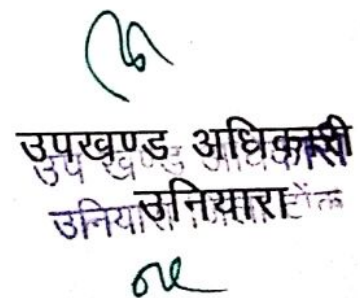 उपखण्ड अधिकारी
उप खण्ड अधिकारी
उनियारा
उनियारा टोंक